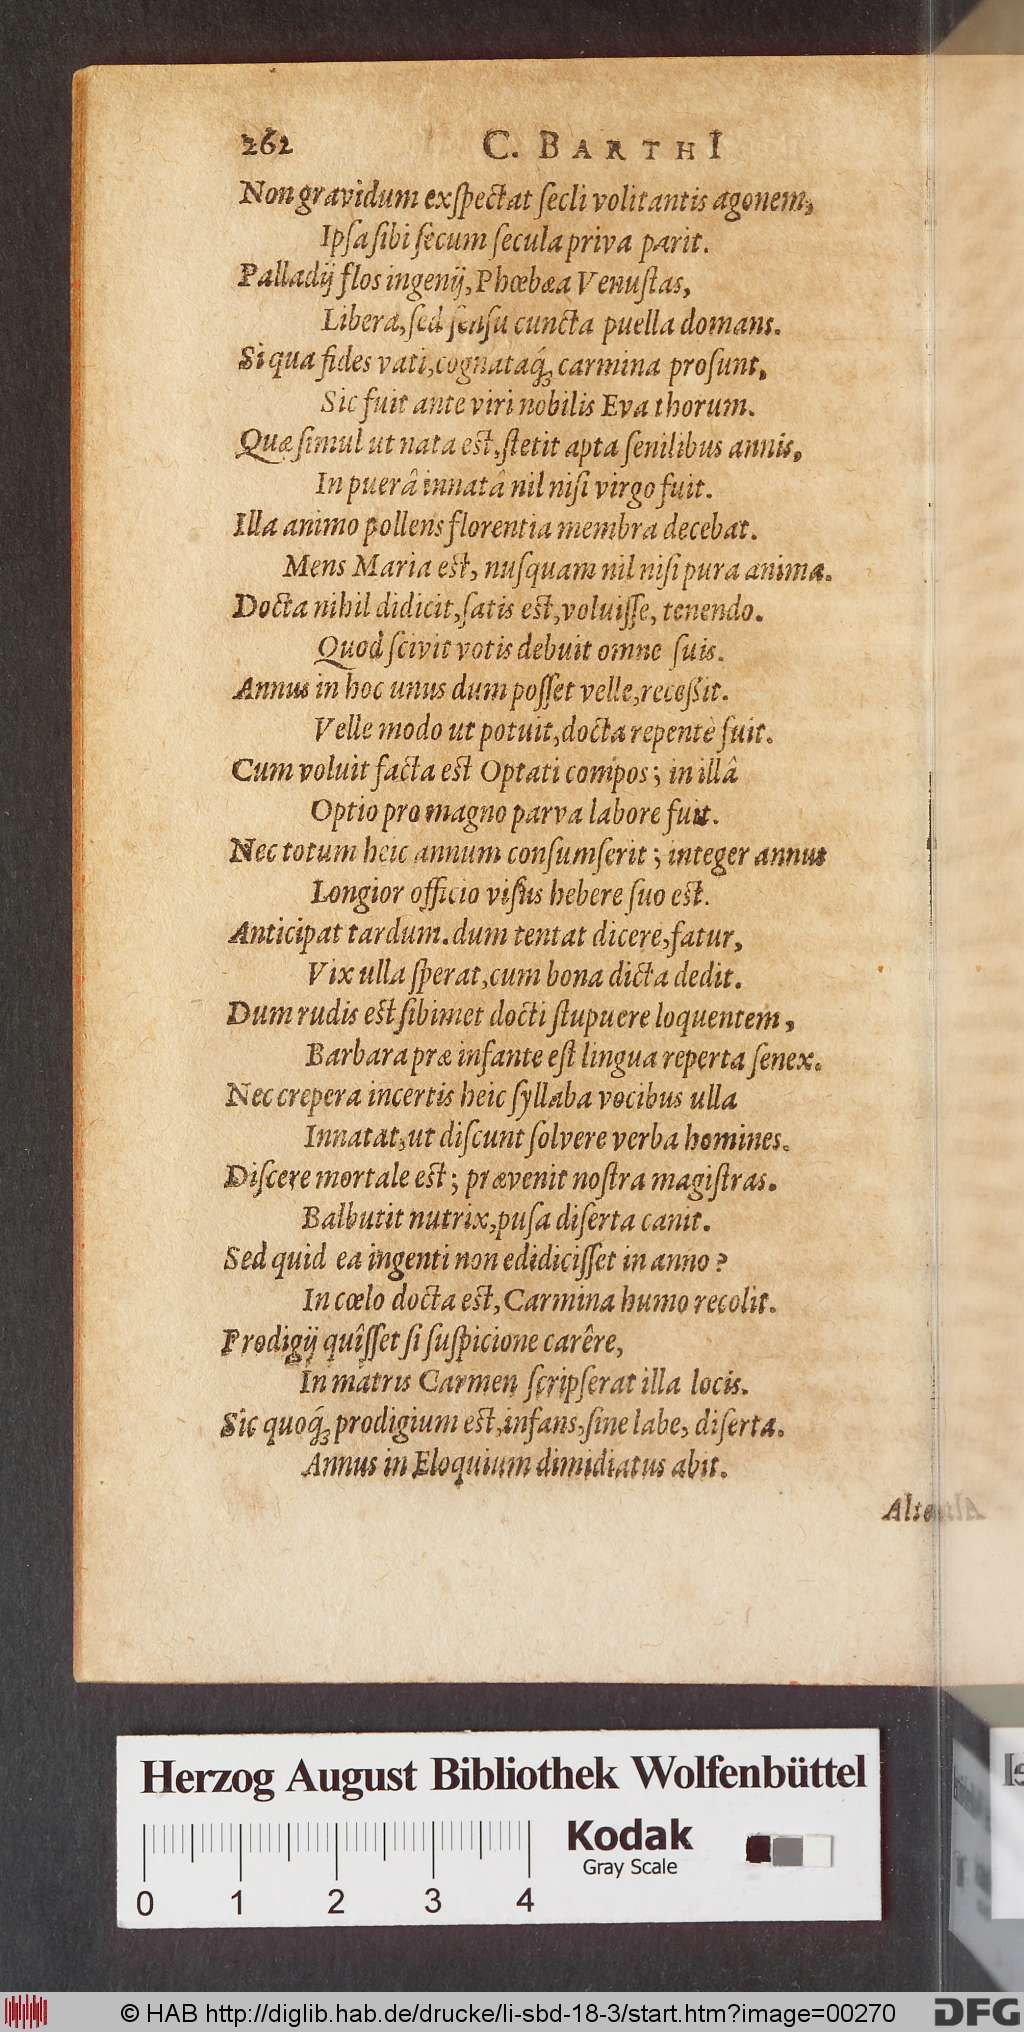 262 C. BARTHI
Non gravidum exspectat secli volitantis agonem,
Ipsa sibi secum secula priva parit.
Palladij flos ingenij, Phœbæa Venustas,
Libera, sed sensu cuncta puella domans.
Si qua fides vati, cognataq́; carmina prosunt,
Sic fuit ante viri nobilis Eva thorum.
Quæ simul ut nata est, stetit apta senilibus annis,
In puerâ innatâ nil nisi virgo fuit.
Illa animo pollens florentia membra decebat.
Mens Maria est, nusquam nil nisi pura anima.
Docta nihil didicit, satis est, voluisse, tenendo.
Quod scivit votis debuit omne suis.
Annus in hoc unus dum posset velle, recessit.
Velle modo ut potuit, docta repentè fuit.
Cum voluit facta est Optati compos; in illâ
Optio pro magno parva labore fuit.
Nec totum heic annum consumserit; integer annus
Longior officio visus hebere suo est.
Anticipat tardum. dum tentat dicere, fatur,
Vix ulla sperat, cum bona dicta dedit.
Dum rudis est sibimet docti stupuere loquentem,
Barbara præ infante est lingua reperta senex.
Nec crepera incertis heic syllaba vocibus ulla
Innatat, ut discunt solvere verba homines.
Discere mortale est; prævenit nostra magistras.
Balbutit nutrix, pusa diserta canit.
Sed quid ea ingenti non edidicisset in anno?
In cœlo docta est, Carmina humo recolit.
Prodigij quîsset si suspicione carêre,
In matris Carmen scripserat illa locis.
Sic quoq́; prodigium est, infans, sine labe, diserta.
Annus in Eloquium dimidiatus abit.
Herzog August Bibliothek Wolfenbüttel
0 1 2 3 4
Kodak
Gray Scale
© HAB http://diglib.hab.de/drucke/li-sbd-18-3/start.htm?image=00270
DFG